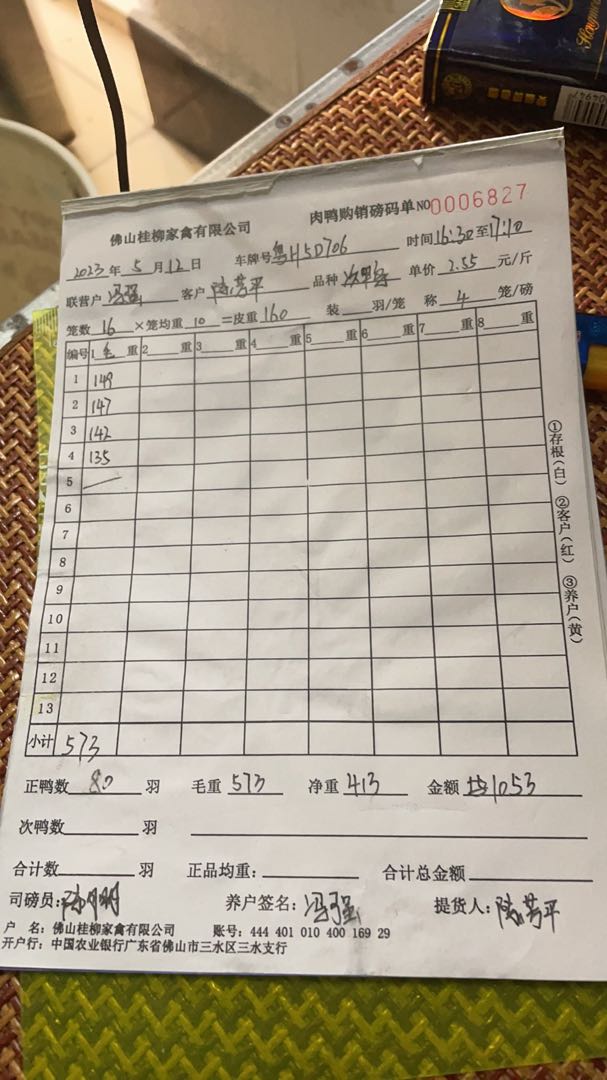 佛山桂柳家禽有限公司 肉鸭购销磅码单 NO0006827
2023年5月12日 车牌号粤H5D706 时间16:30至17:10
联营户冯强 客户陆芳平 品种 单价2.55元/斤
笼数16×笼均重10=皮重160 装 羽/笼 称4笼/磅
编号 1毛重 2 重 3 重 4 重 5 重 6 重 7 重 8 重
1 149
2 147
3 142
4 135
5
6
7
8
9
10
11
12
13
小计 573
①存根(白) ②客户(红) ③养户(黄)
正鸭数80羽 毛重573 净重413 金额1053
次鸭数 羽
合计数 羽 正品均重: 合计总金额
司磅员: 养户签名:冯强 提货人:陆芳平
户 名:佛山桂柳家禽有限公司 账号:444 401 010 400 169 29
开户行:中国农业银行广东省佛山市三水区三水支行